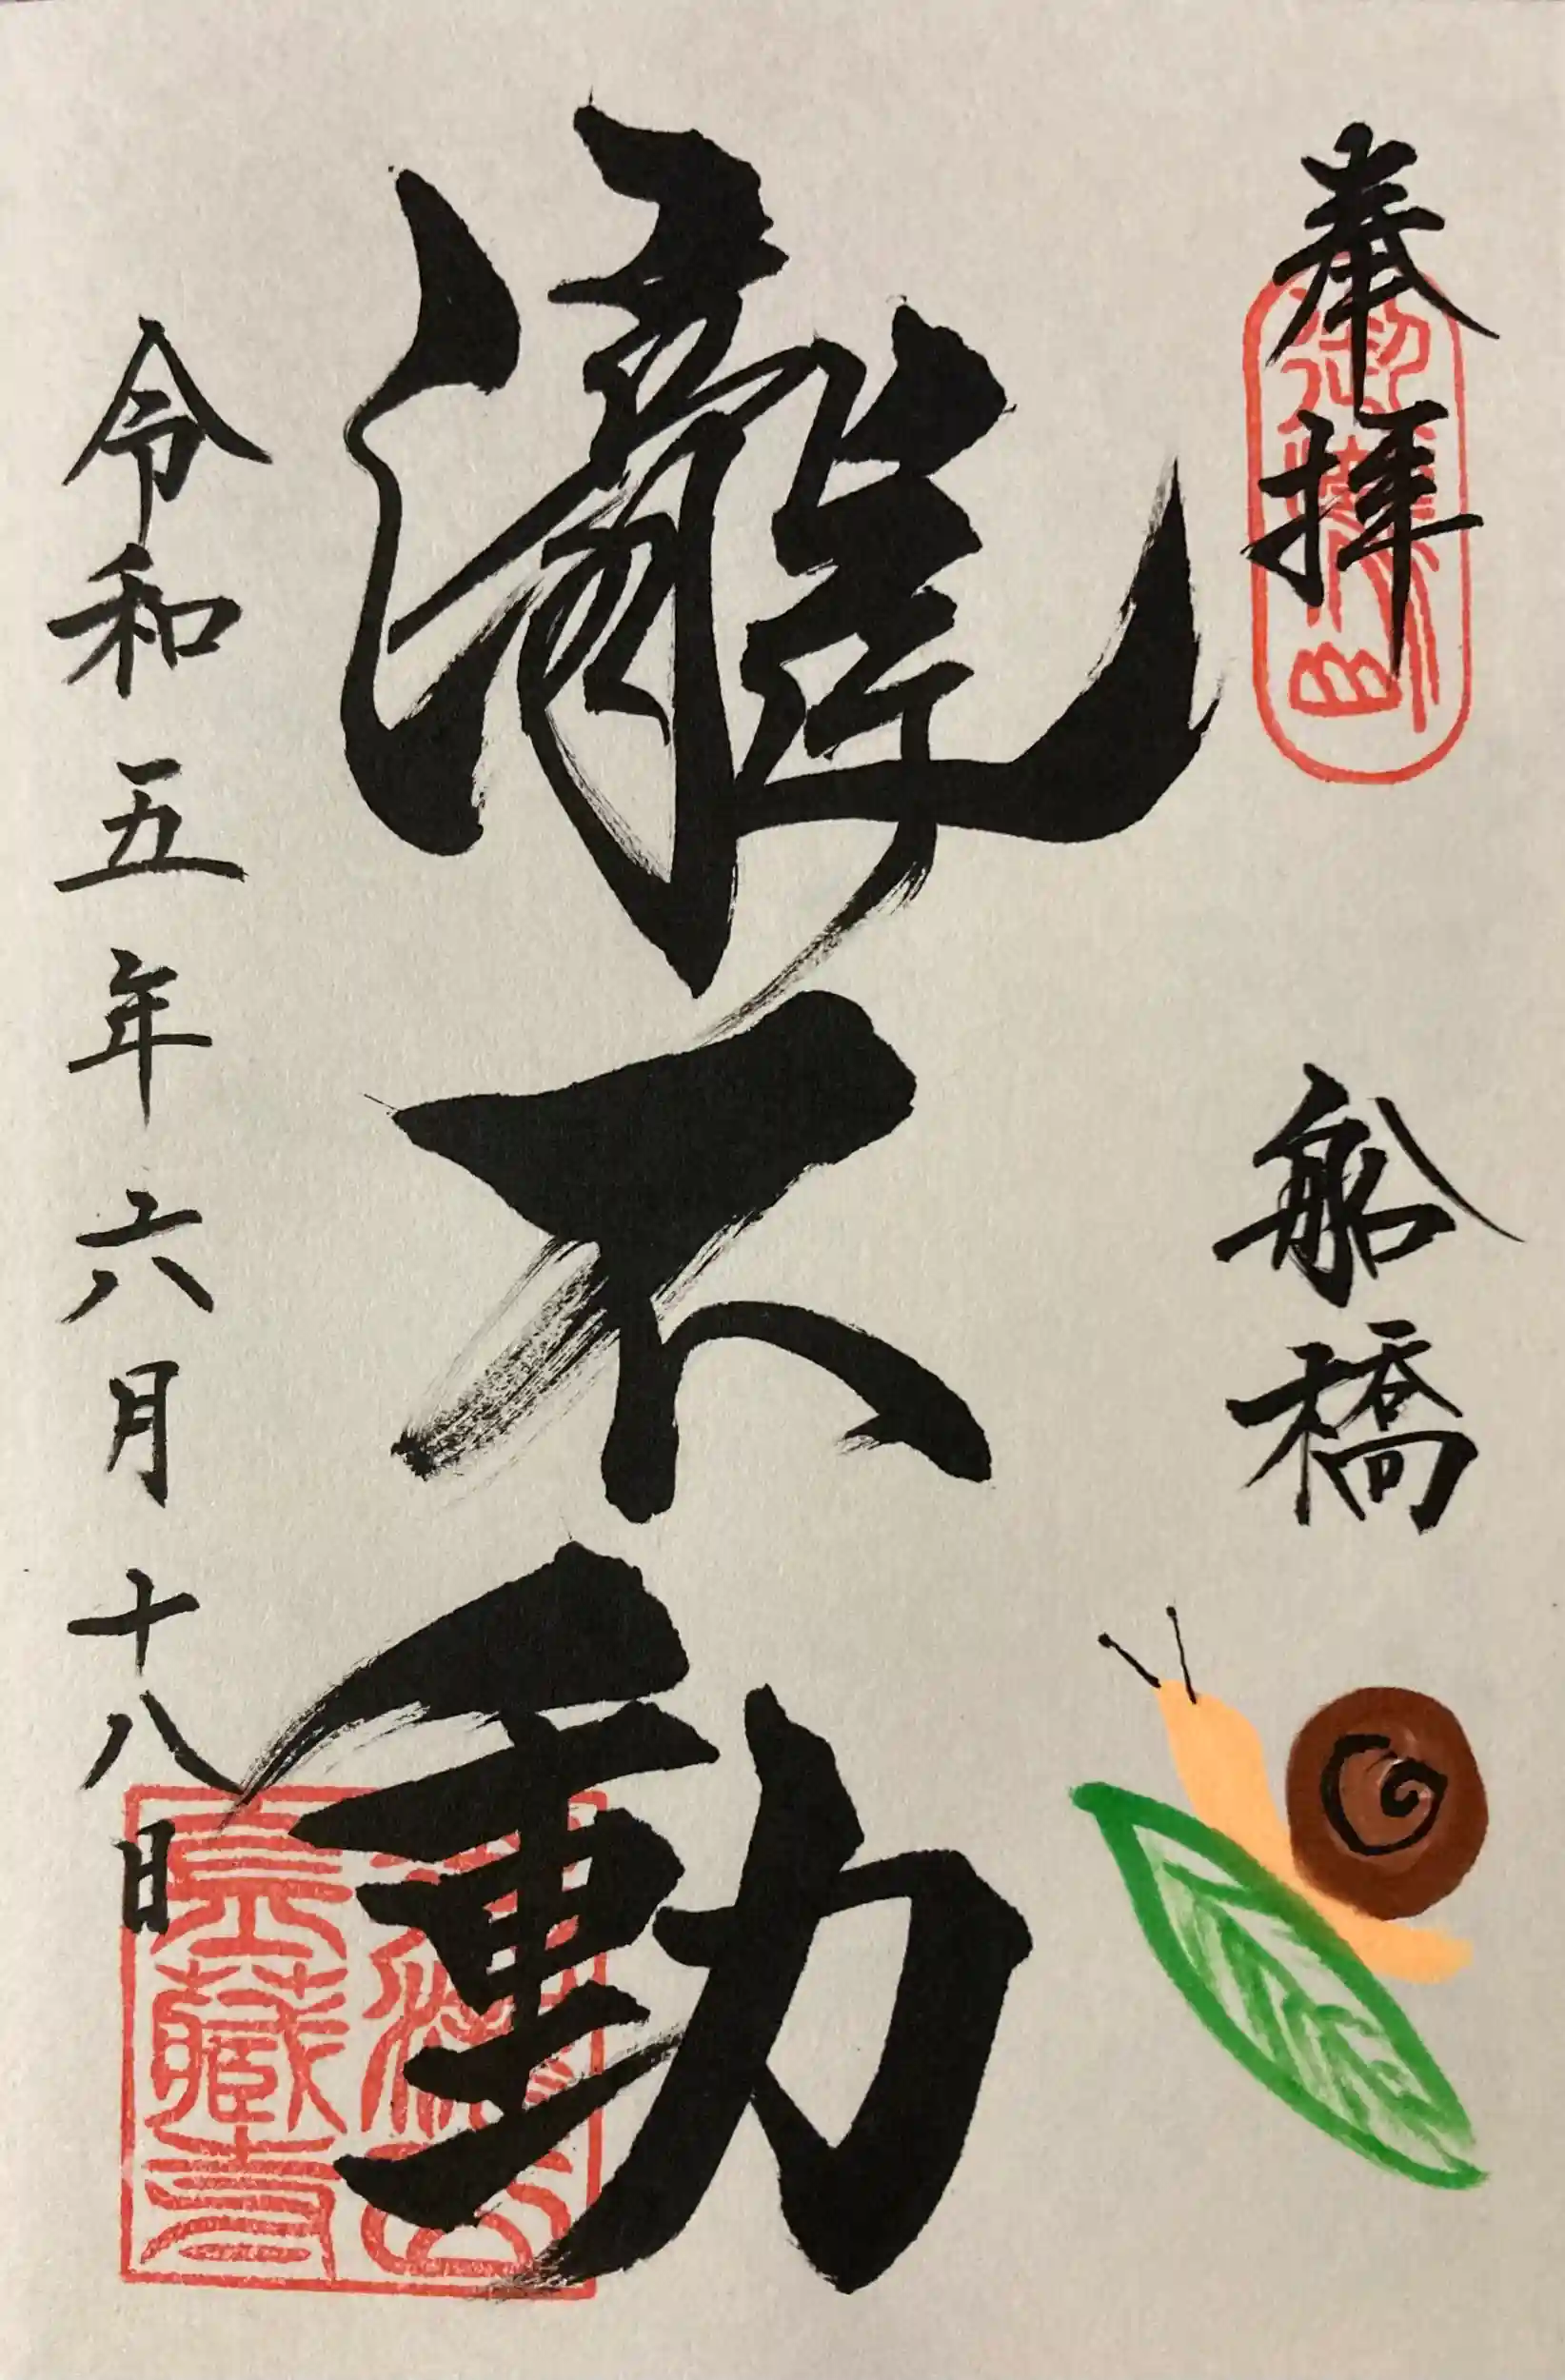 奉拝
船橋
瀧不動
令和五年六月十八日
長藏寺